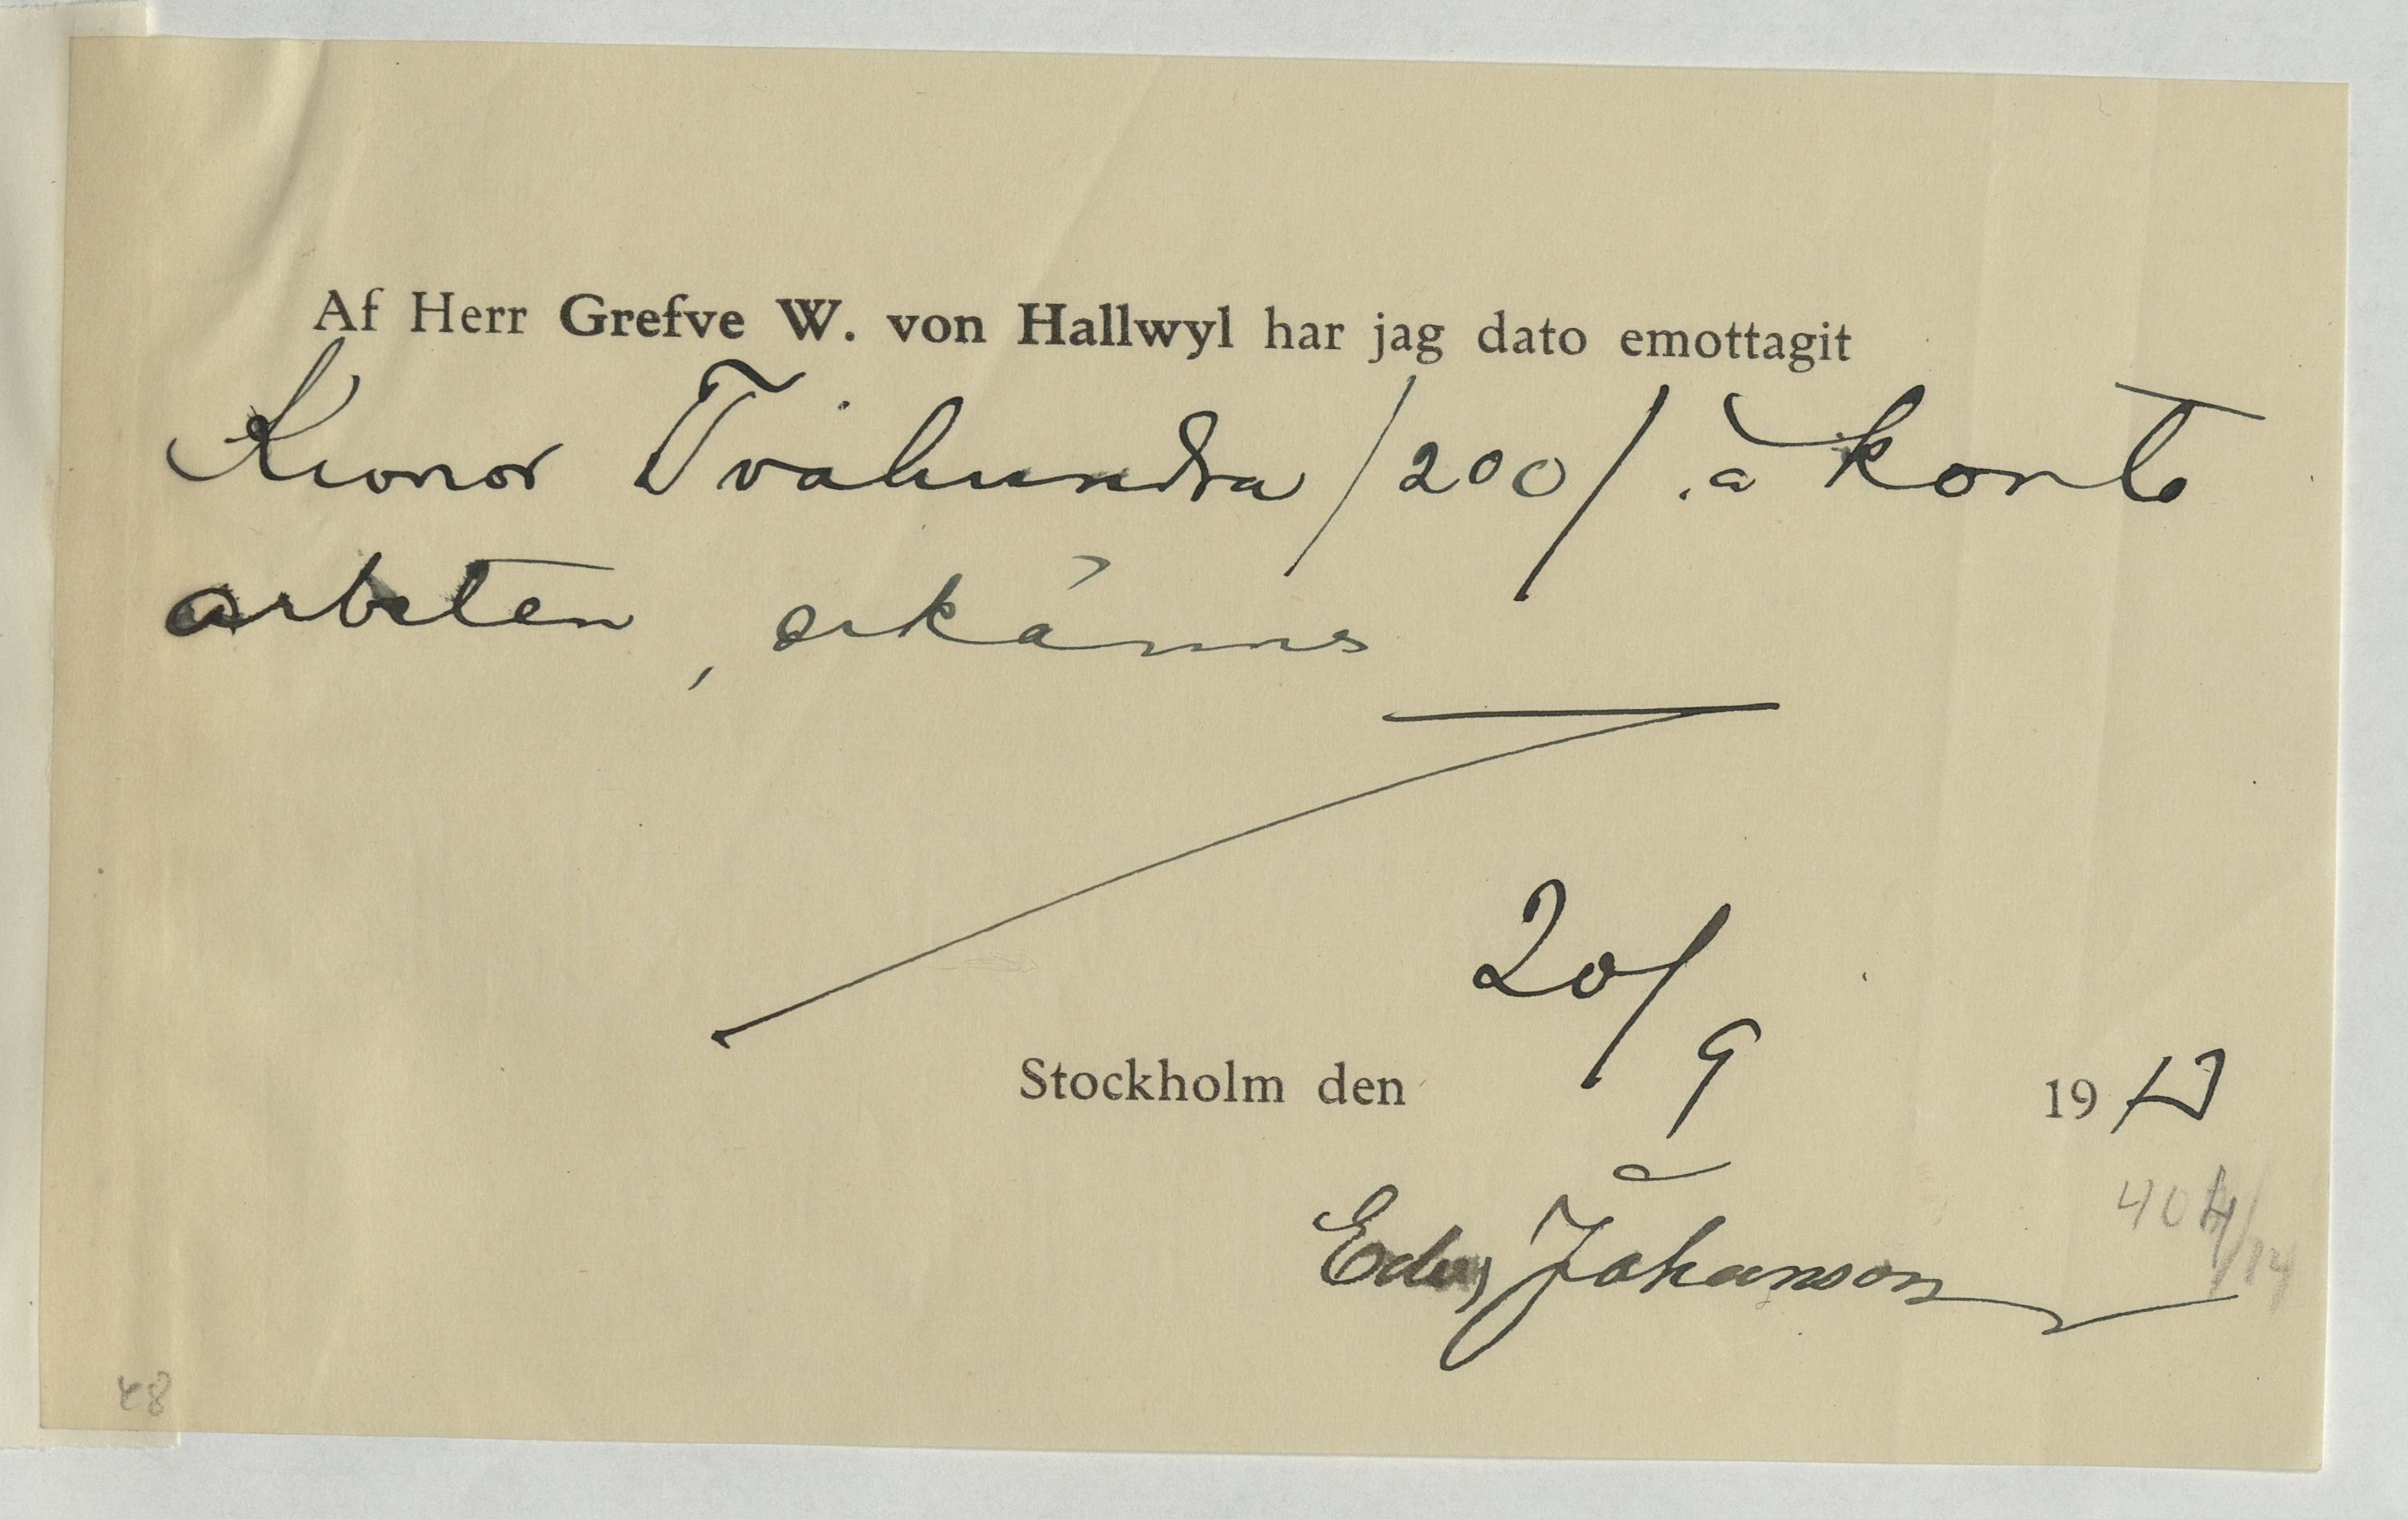 Af Herr Grefve W. von Hallwyl har jag dato emottagit
Kronor Tvåhundra /200/. à konto
arbeten, erkännes
20/9
Stockholm den 19
Edv. Johanson
48